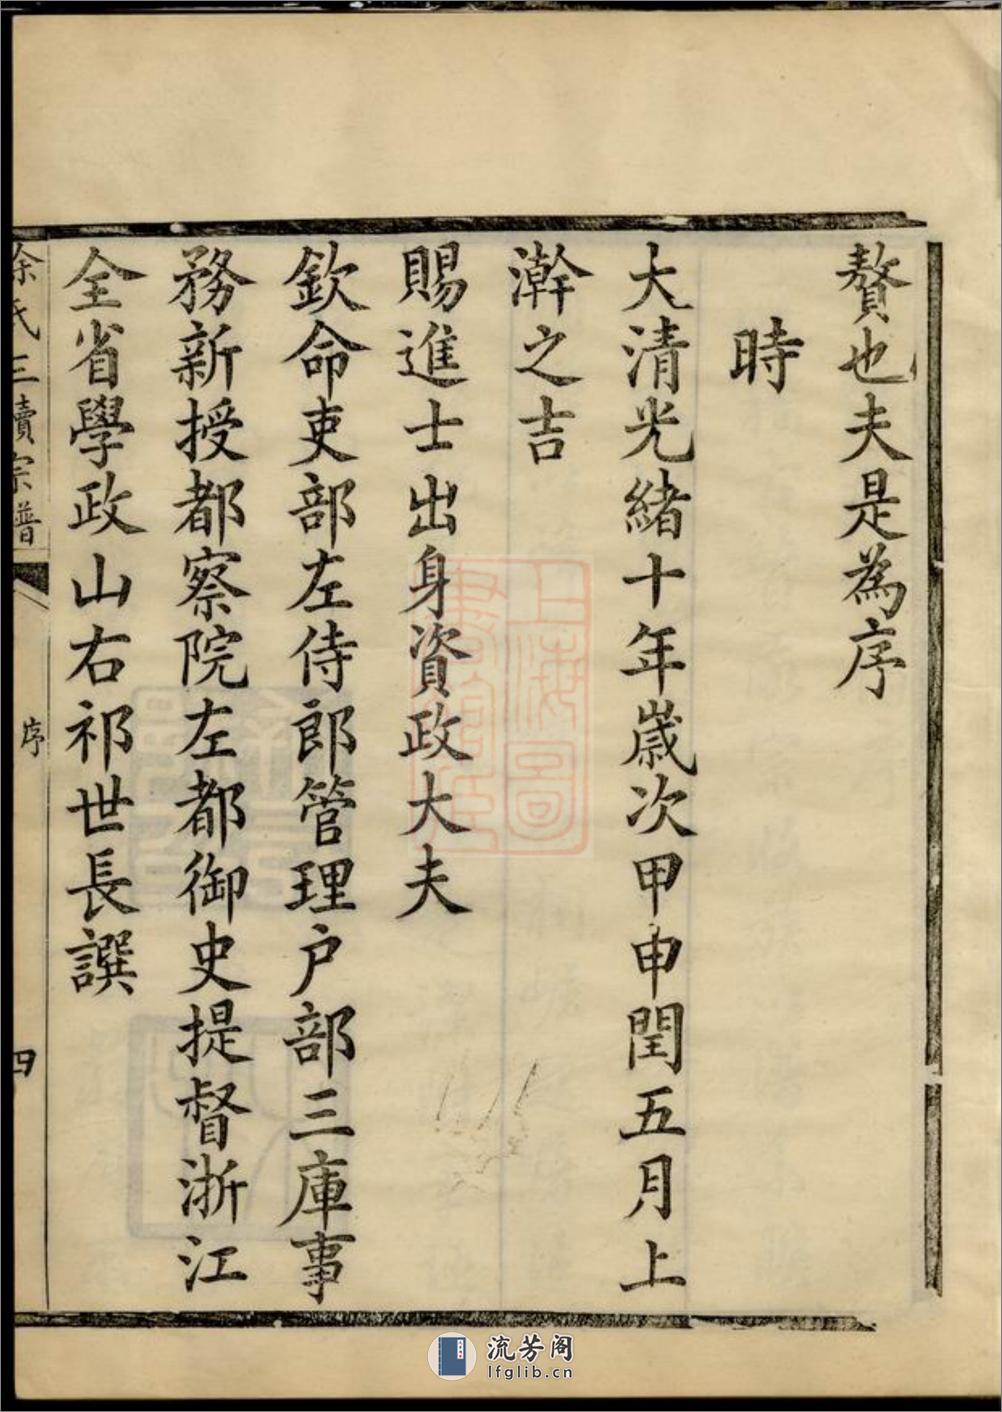 贅也夫是為序
時
大清光緒十年歲次甲申閏五月上
澣之吉
賜進士出身資政大夫
欽命吏部左侍郎管理户部三庫事
務新授都察院左都御史提督浙江
全省學政山右祁世長譔
徐氏三續宗譜
序
四
上海圖
流芳阁
lfglib.cn